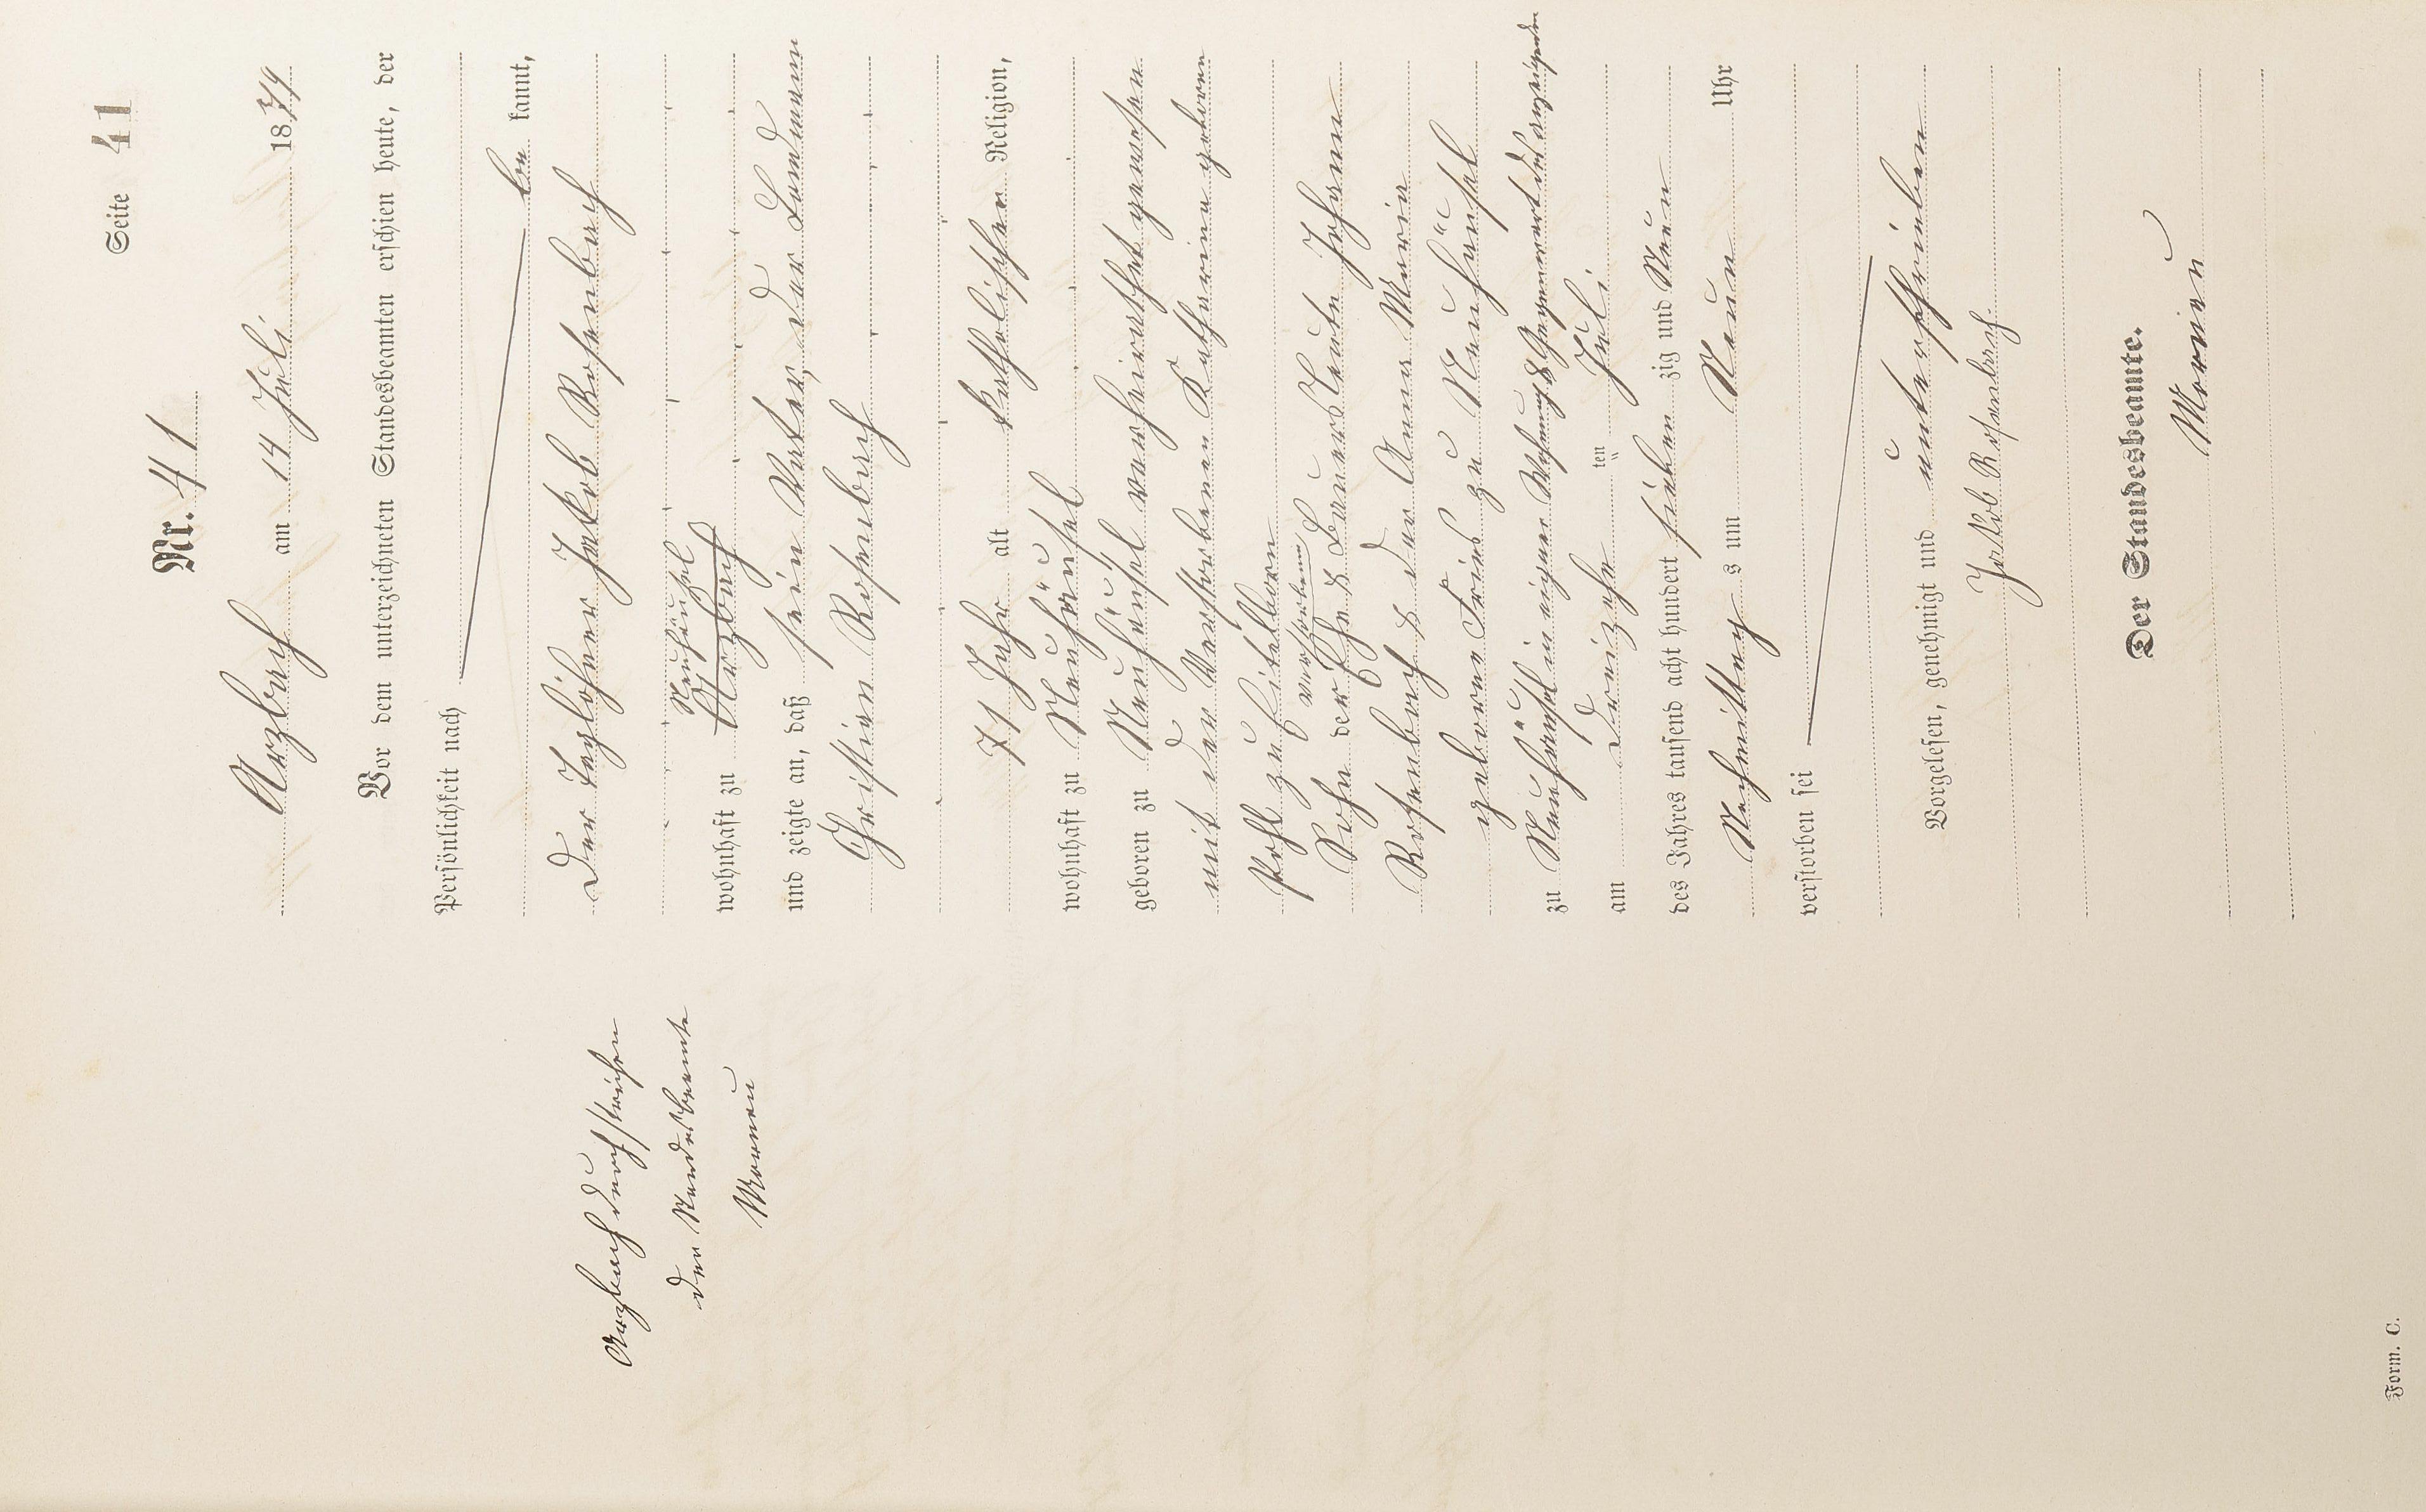 Seite 41
Nr. 41
Arzbach am 14 Juli 1879
Vor dem unterzeichneten Standesbeamten erschien heute, der
Persönlichkeit nach
be kannt,
der Taglöhner Jakob Rosenbach
Neuhäusel
wohnhaft zu Arzbach
und zeigte an, daß sein Vater, der Landmann
Christian Rosenbach
71 Jahr alt katholischen Religion,
wohnhaft zu Neuhäusel
geboren zu Neuhäusel verheirathet gewesen
mit der verstorbenen Katharina geboren
Pohl zu Eitelborn
verstorbenen
Sohn der Ehe & Bauersleute Johann
Rosenbach & der Anna Maria
geborene Fries zu Neuhäusel
zu Neuhäusel in eigner Wohnung & Gegenwart des Anzeigenden
am dreizehn ten Juli
des Jahres tausend acht hundert sieben zig und Neun
Nachmittag s um Neun Uhr
verstorben sei
Vorgelesen, genehmigt und unterschrieben
Jakob Rosenbach.
Der Standesbeamte.
Arzbach durchstrichen
der Standesbeamte
Form. C.